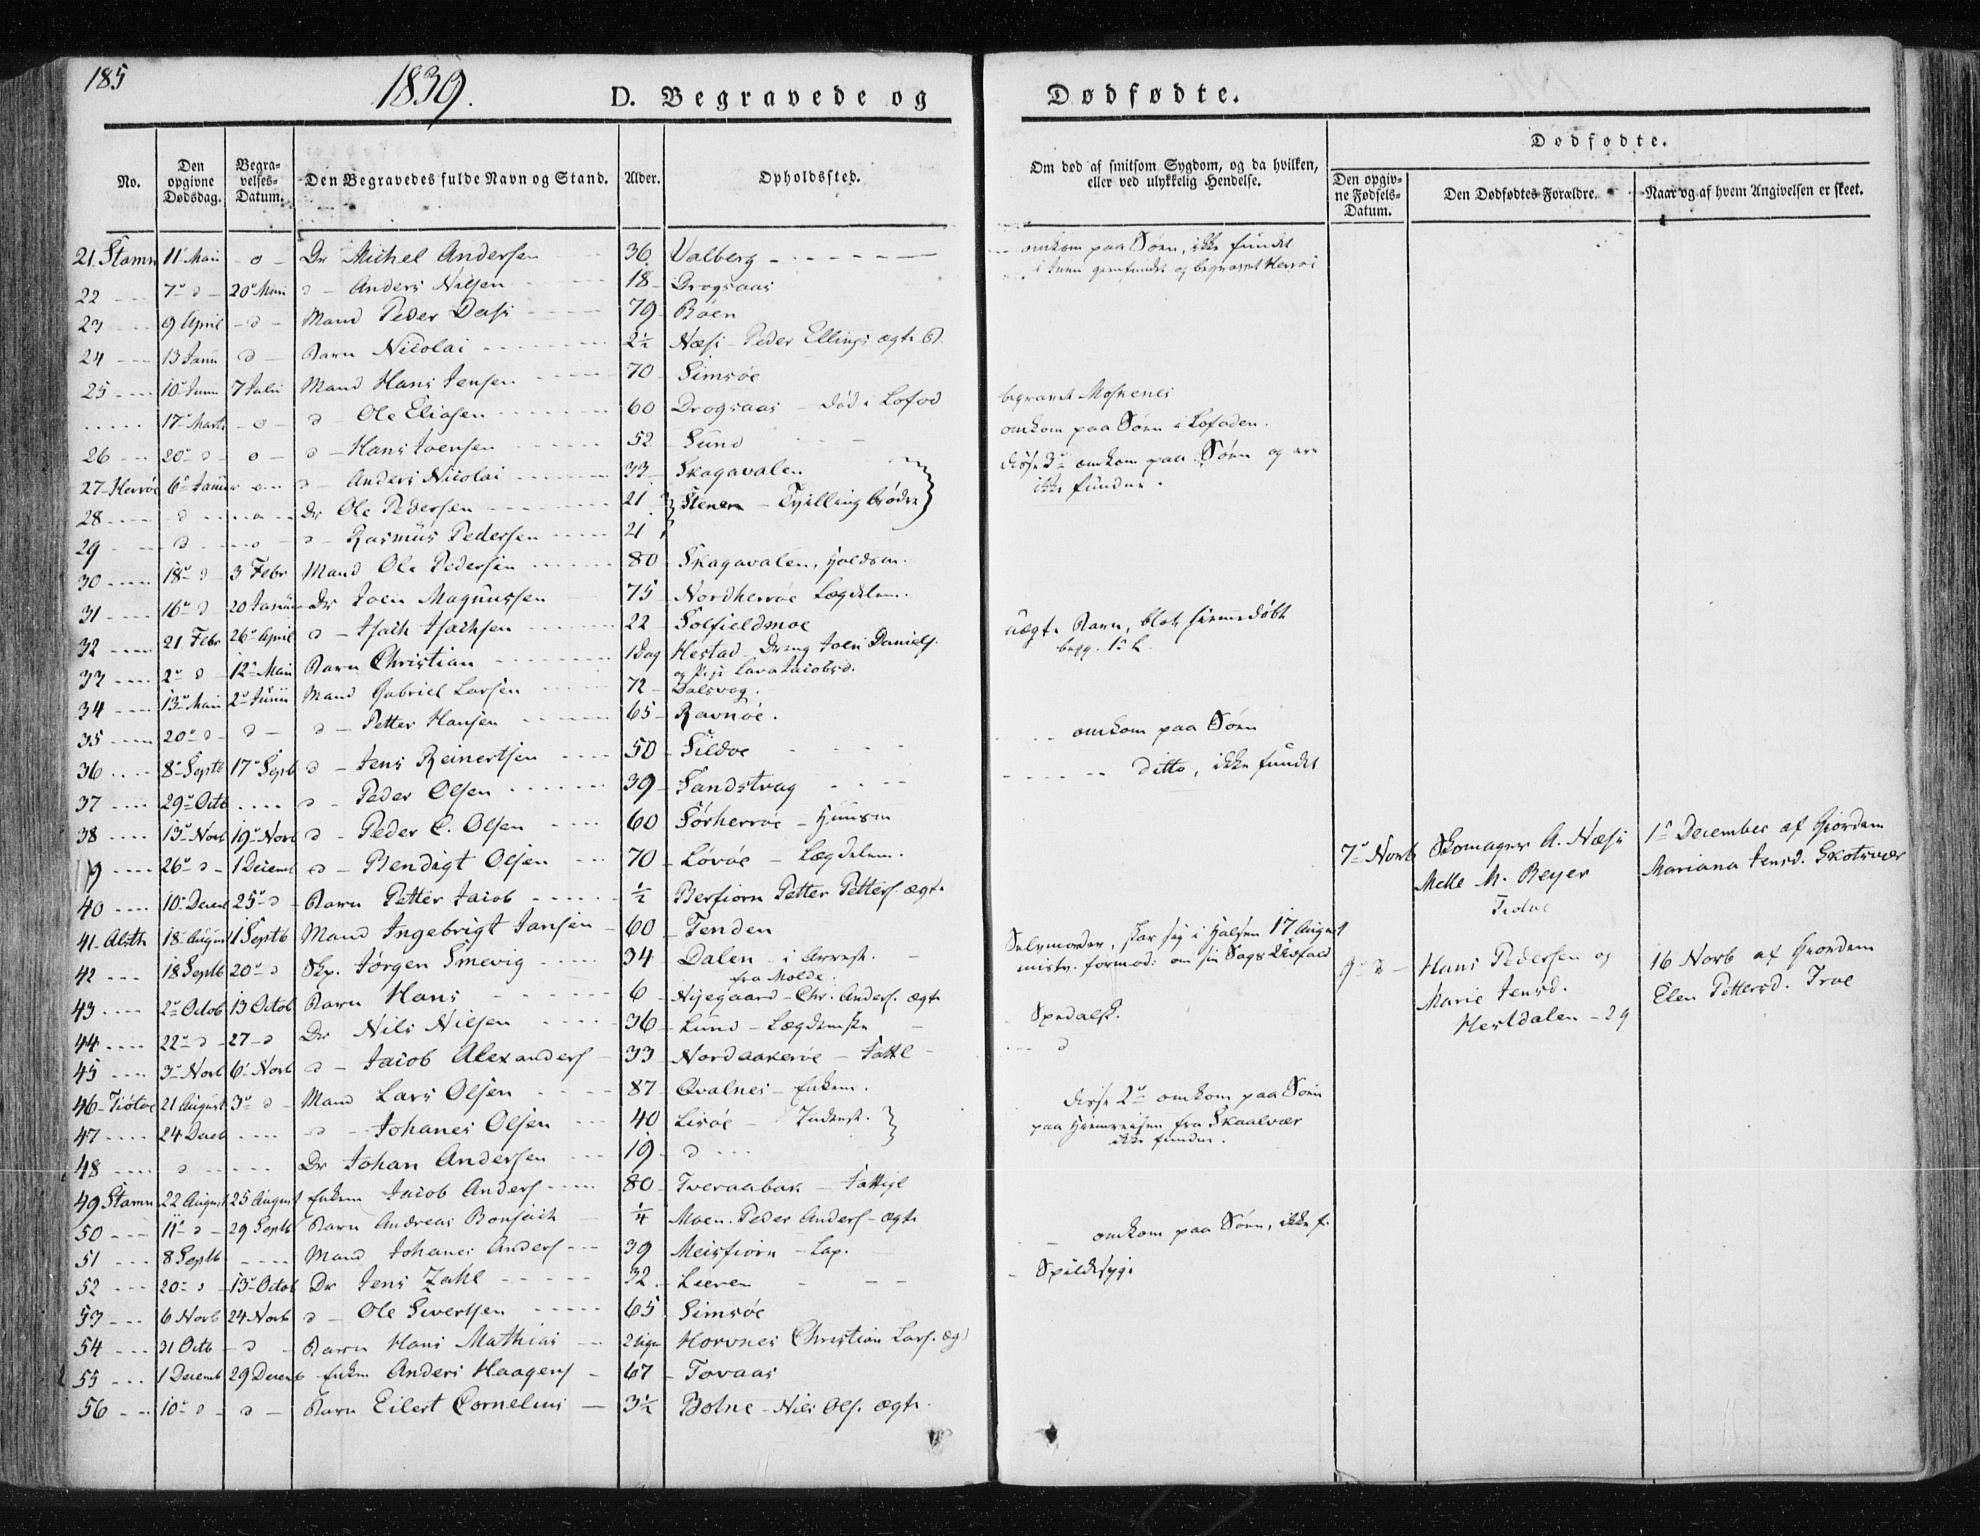 185
1839.
D. Begravede og
Dødfødte.
No.
Den opgivne Dødsdag.
Begravelses-Datum.
Den Begravedes fulde Navn og Stand.
Alder.
Opholdssted.
Om død af smitsom Sygdom, og da hvilken, eller ved ulykkelig Hendelse.
Dødfødte.
Den opgivne Fødsels-Datum.
Den Dødfødtes Forældre.
Naar og af hvem Angivelsen er skeet.
21. Stamn 11 Mai - o - Dr Michel Andersen 36. Valberg - omkom paa Søen, ikke fundet
i Juni gjenfundet og begravet Herrøe
22 7 d 20 Mai d - Anders Nilsen 18 Drogsaas
23 9 April - d - Mand Peder Dass 79 Bøen
24 13 Juni d - Barn Nicolai 2½ Næss - Peder Ellings. ægte B.
25 10 Juni 7 Juli Mand Hans Jensen 70 Simsøe
17 Marts - o - d - Ole Eliasen 60 Drogsaas - død i Lofod begravet Moskenes
26 20 d o d - Hans Iversen 52 Sund omkom paa Søen i Lofoden.
27 Herrøe 6 Januar d - Anders Nicolai 33 Skagavalen disse 3 omkom paa Søen og ere
ikke fundne.
28 d o Dr Ole Pedersen 21 Stenen - Tvillingbrødre
29 d o d - Rasmus Pedersen 21
30 18 d 3 Febr Mand Ole Pedersen 80 Skagavalen, Holdsm.
31 16 d 20 Januar Dr Joen Magnussen 75 Nordherrøe Lægdslem.
32 21 Febr 26 April d - Isach Isachsen 22 Solfieldmoe
33 2 d 12 Mai Barn Christian 1 Dag Hestad - Dreng Joen Daniels.
og Pige Lava Jacobsd.
uægte Barn, blot hiemmedøbt
34 13 Mai 2 Juni Mand Gabriel Larsen 72 Dalsvag.
35 20 d d - d - Petter Hansen 65 Ravnøe.
36 8 Septb 17 Septb d - Jens Reinertsen 50 Sildøe - omkom paa Søen
37 29 Octb d - Peder Olsen 39 Sandstrag - ditto, ikke fundet
38 13 Novb 19 Novb d - Peder C. Olsen 60 Sørherrøe - Huusm
39 26 d 1 Decemb d - Bendigt Olsen 70 Løvøe - Lægdslem.
7 Novb Skomager A. Næss
Melle M. Beyer
1 December af Giordem
Mariana Jensd. Skotsvær
40 10 Decemb 25 d Barn Petter Jacob ½ Berfiorn Petter Petters. ægte
41. Alsth 18 August 1 Septb Mand Ingebrigt Jansen 60 Tenden
42 18 Septb 20 d Skp. Jørgen Smevig 34 Dalen - i Arrest.
fra Molde.
Selvmorder, skar sig i Halsen 17 August
mistv. formod: om sin Sags Udfald
43 2 Octob 13 Octob Barn Hans 6 Nyegaard - Chr. Anders. ægte
9 d - Hans Pedersen og
Marie Jensd.
Hestdalen - 29
16 Novb af Giordem
Elen Pettersd. Troe
44 22 d 27 d Dr Nils Nilsen 36 Lund - Lægdemske Spedalsk.
45 3 Novb 6 Novb d - Jacob Alexanders 33 Nordaakerøe - Fattl d
46 Tiøtøe 21 August 3 d Mand Lars Olsen 87 Qvalnes - Enkem.
47 24 Decb d - Johanes Olsen 40 Lisøe - Inderst. disse 2 omkom paa Søen
paa Hiemreisen fra Skaalvær
ikke fundne.
48 d Dr Johan Andersen 19 d
49 Stamn 22 August 25 August Enkem Jacob Anders 80 Tveraabak - Fattigl
50 11 d 29 Septb Barn Andreas Bonsach ¼ Moen. Peder Anders - ægte
51 8 Septb Mand Johanes Anders 39 Meisfiorn - Lap. - omkom paa Søen, ikke f.
52 20 d 13 Octob Dr Jens Zahl 32 Leeren - Spildesyge
53 6 Novb 24 Novb d - Ole Sivertsen 65 Simsøe
54 31 Octb d Barn Hans Mathias 2 Uger Horvnes Christian Lars. æg
55 1 Decemb 29 Decemb Enkem Anders Haagens 67 Tovaas
56 10 d d Barn Eilert Cornelius 3½ Botne - Nils Ols. ægte.